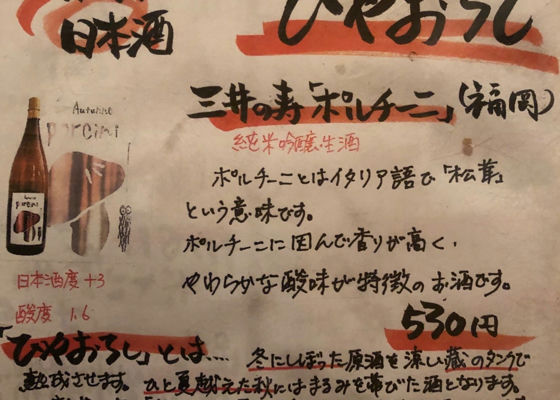 日本酒
ひやおろし
三井の寿「ポルチーニ」(福岡)
純米吟醸生酒
Autunno
porcini
ポルチーニとはイタリア語で「松茸」
という意味です。
ポルチーニに因んで香りが高く、
やわらかな酸味が特徴のお酒です。
porcini
日本酒度 +3
酸度 1.6
530円
「ひやおろし」とは....
冬にしぼった原酒を涼しい蔵のタンクで
熟成させます。ひと夏越えた秋にはまるみを帯びた酒となります。